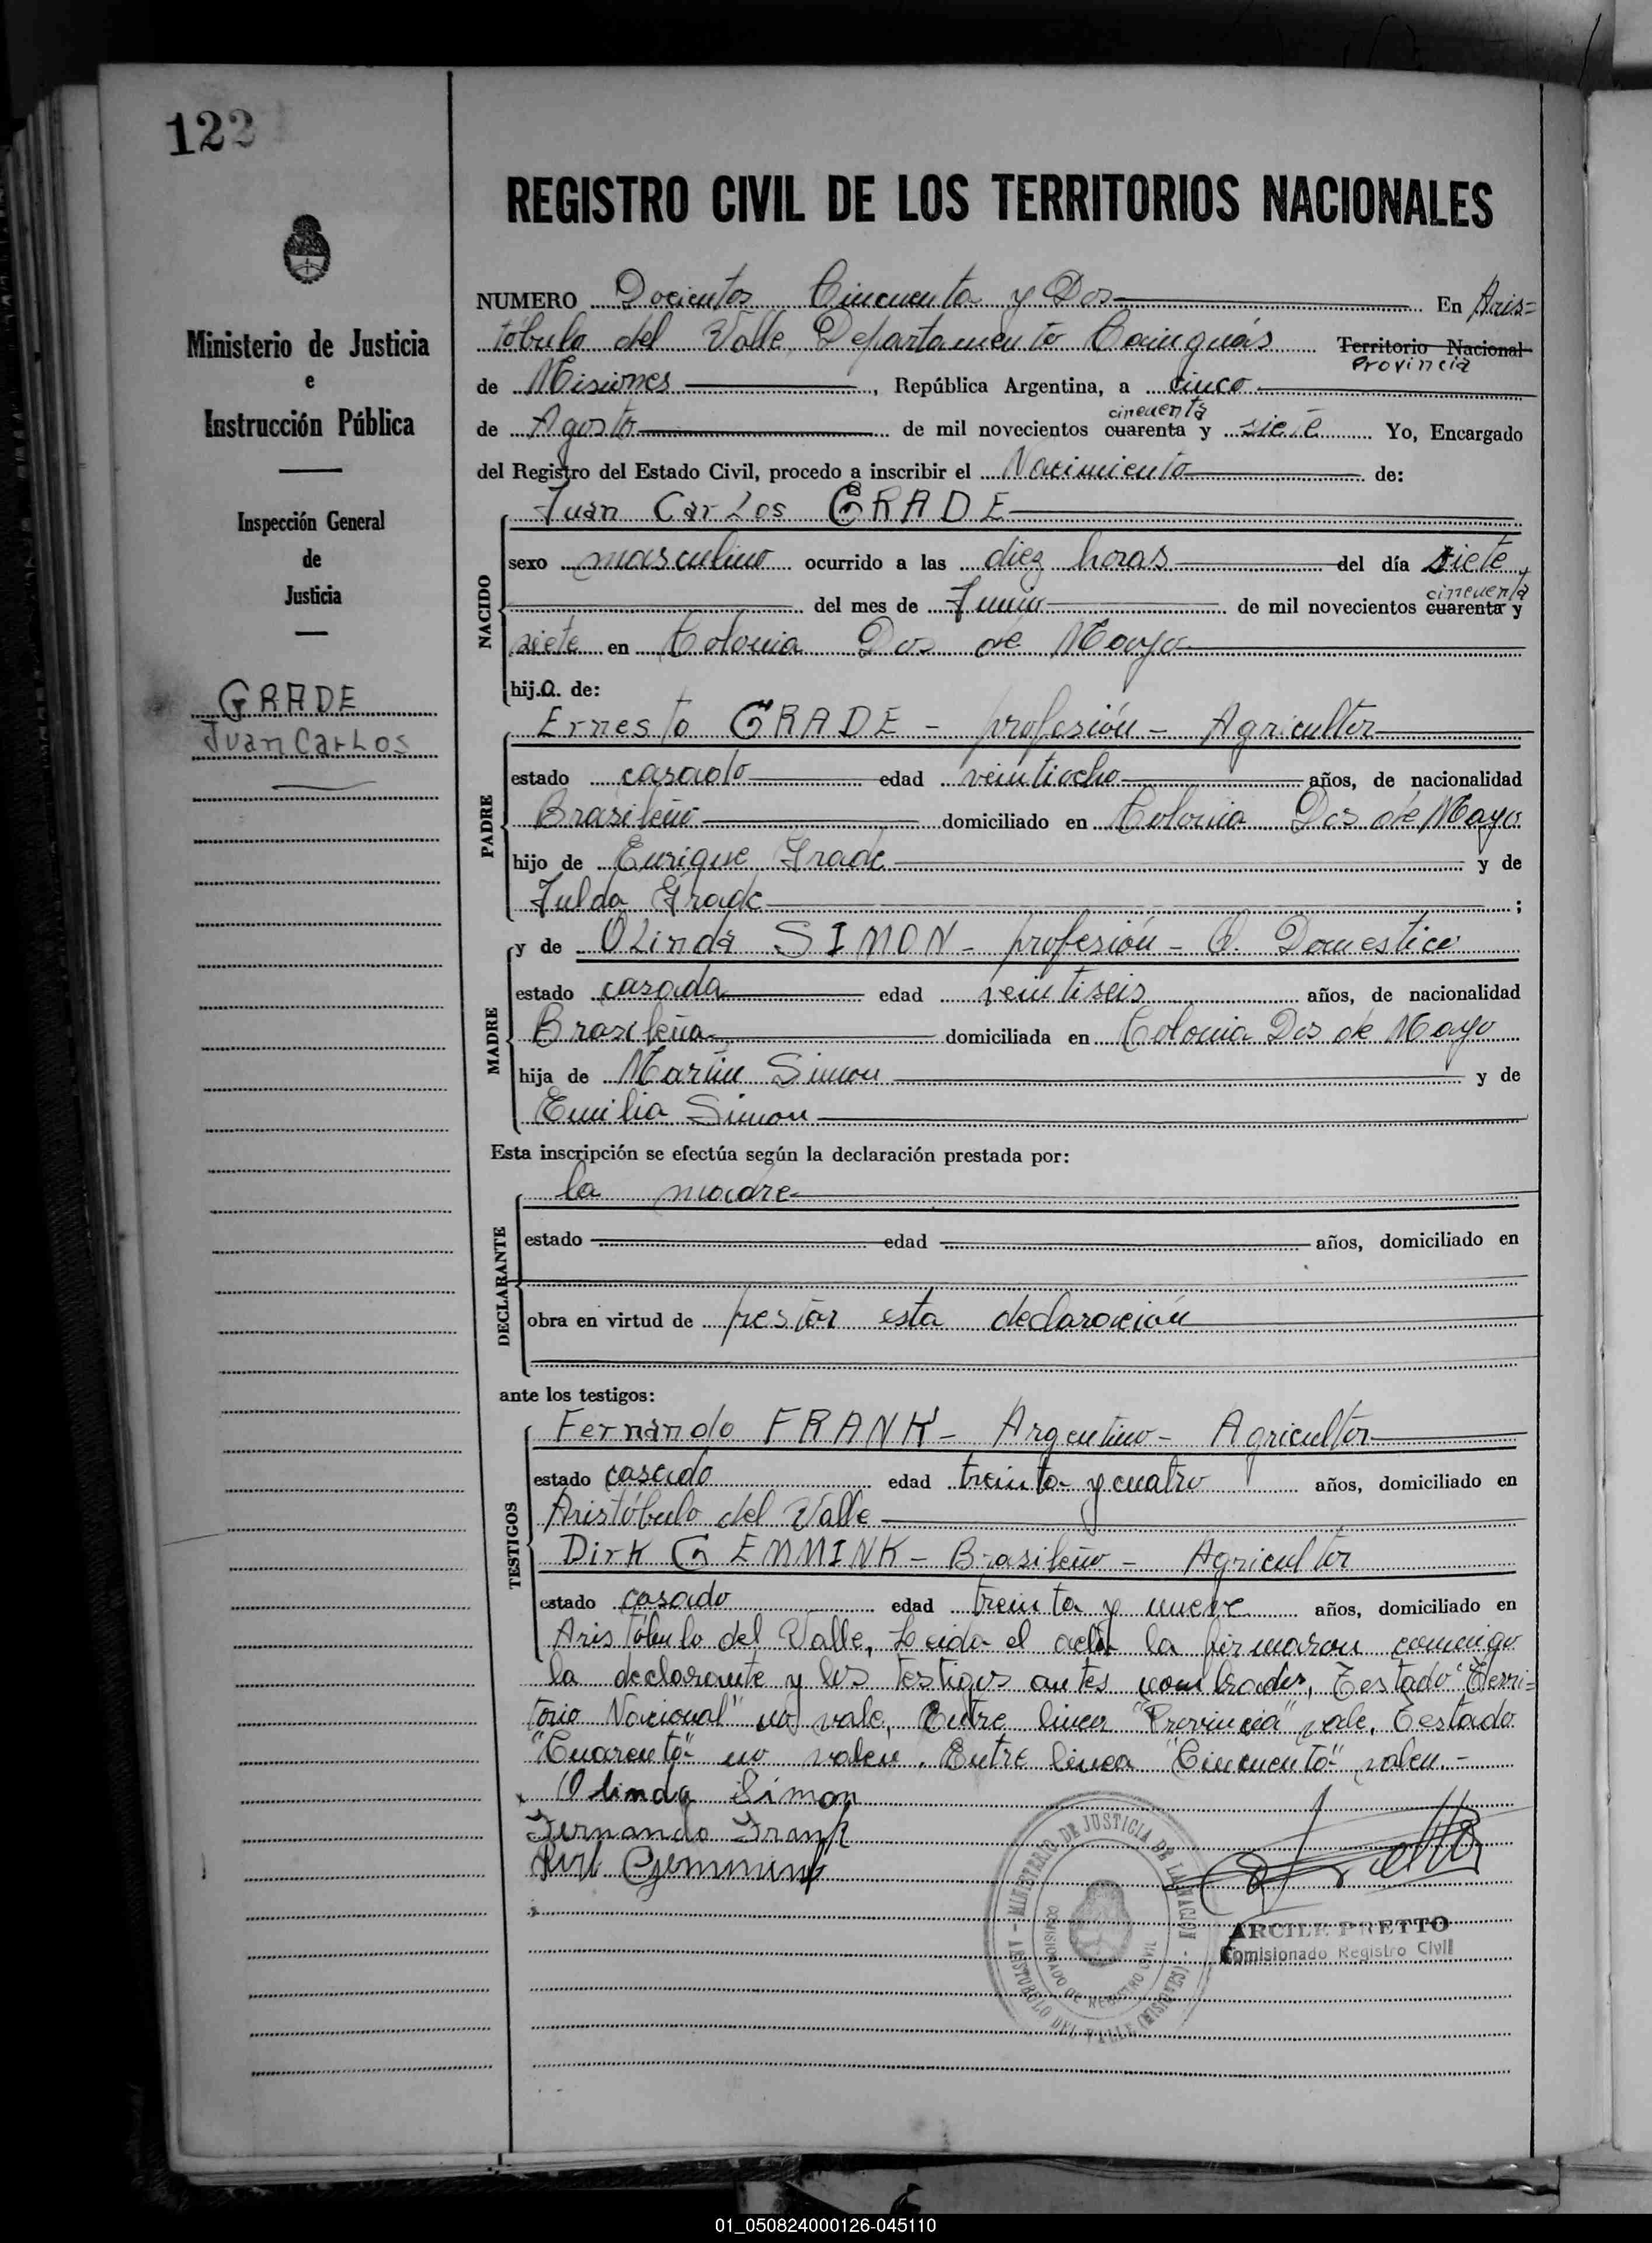 122
REGISTRO CIVIL DE LOS TERRITORIOS NACIONALES
Ministerio de Justicia
e
Instrucción Pública
Inspección General
de
Justicia
GRADE
Juan Carlos
NUMERO Docientos Cincuenta y Dos En Aris=
tóbulo del Valle, Departamento Cainguás Territorio Nacional
Provincia
de Misiones, República Argentina, a cinco
cincuenta
de Agosto de mil novecientos cuarenta y siete Yo, Encargado
del Registro del Estado Civil, procedo a inscribir el Nacimiento de:
NACIDO
Juan Carlos GRADE
sexo masculino ocurrido a las diez horas del día siete
cincuenta
del mes de Junio de mil novecientos cuarenta y
siete en Colonia Dos de Mayo
hij.o. de:
PADRE
Ernesto GRADE - profesión - Agricultor
estado casado edad veintiocho años, de nacionalidad
Brasileño domiciliado en Colonia Dos de Mayo
hijo de Enrique Grade y de
Julda Grade ;
MADRE
y de Olinda SIMON - profesión - Q. Domestico
estado casada edad veintiseis años, de nacionalidad
Brasileña domiciliada en Colonia Dos de Mayo
hija de Martin Simon y de
Emilia Simon
Esta inscripción se efectúa según la declaración prestada por:
DECLARANTE
la madre
estado edad años, domiciliado en
obra en virtud de prestar esta declaración
ante los testigos:
TESTIGOS
Fernando FRANK - Argentino - Agricultor
estado casado edad treinta y cuatro años, domiciliado en
Aristóbulo del Valle
Dirk GEMMINK - Brasileño - Agricultor
estado casado edad treinta y nueve años, domiciliado en
Aristobulo del Valle, Leida el acta la firmaron comigo
la declarante y los testigos antes nombrados, Testado "Terri=
torio Nacional" no vale, Entre linea "Provincia" vale, Testado
"Cuarenta" no valen. Entre linea "Cincuenta" valen.-
Olinda Simon
Fernando Frank
Dirk Gemmink
MINISTERIO DE JUSTICIA DE LA NACION - ARISTOBULO DEL VALLE (MISIONES) -
COMISIONADO DE REGISTRO CIVIL
ARCILE PRETTO
Comisionado Registro Civil
01_050824000126-045110